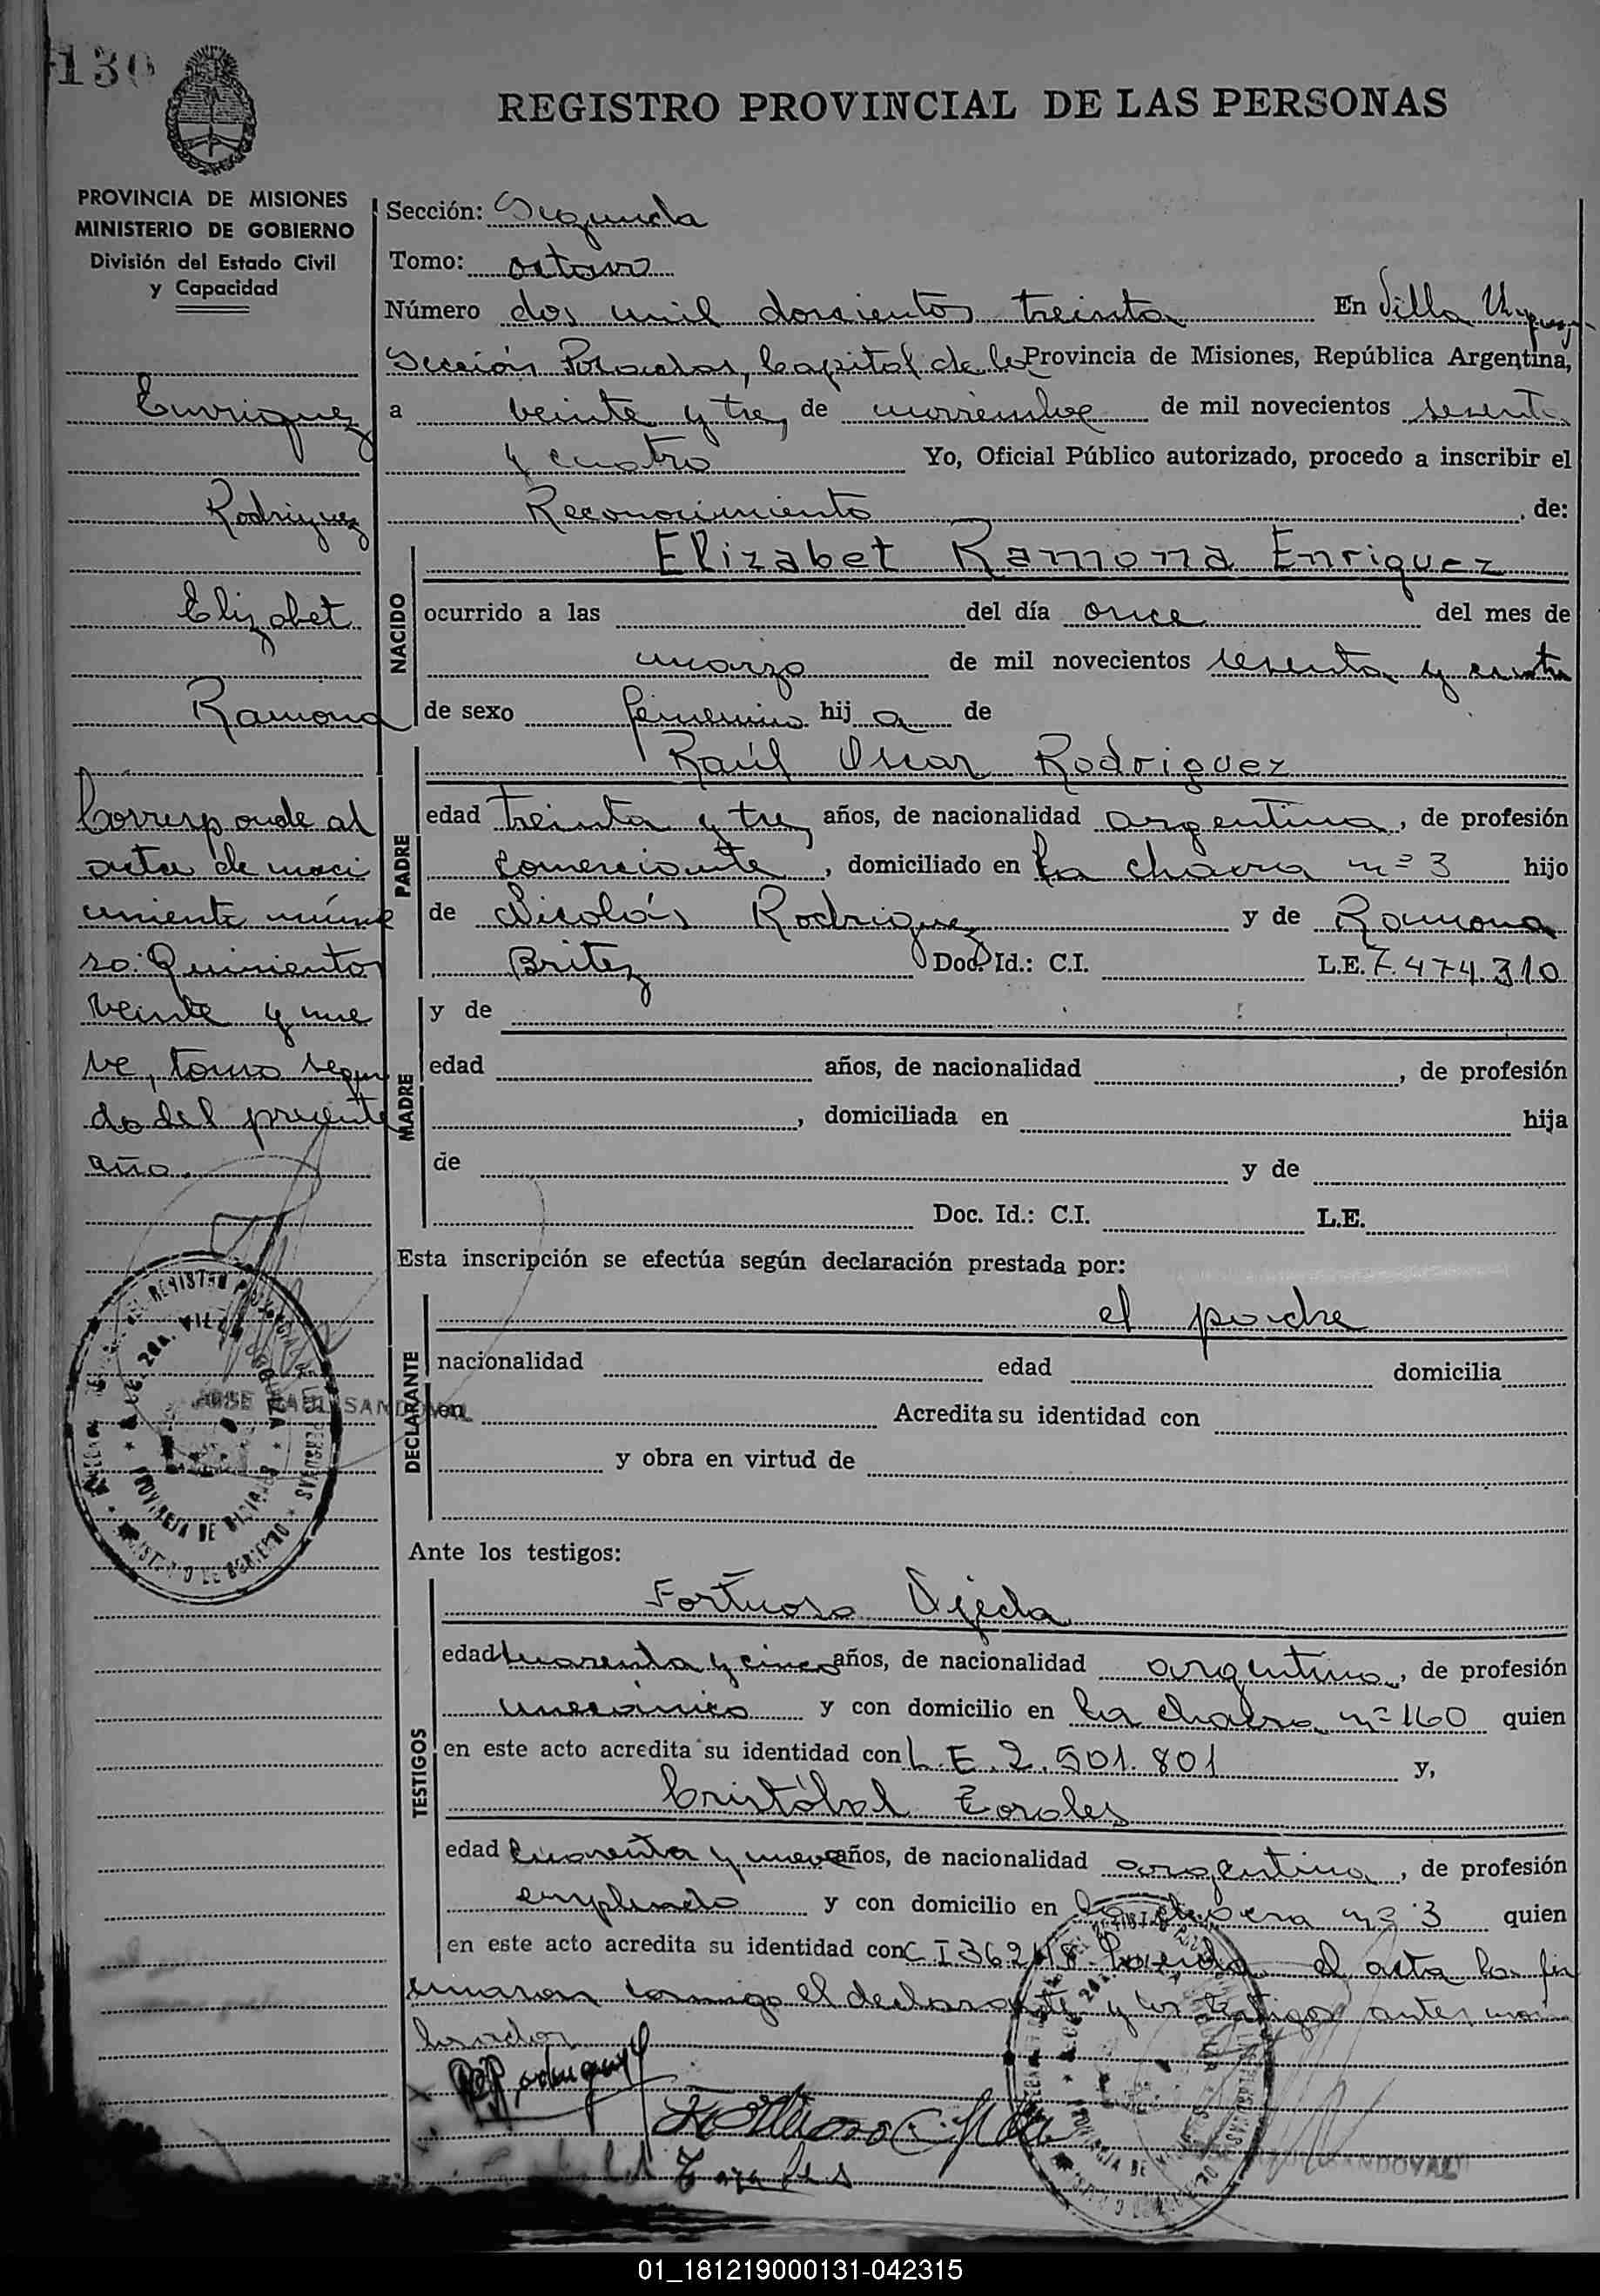 130
REGISTRO PROVINCIAL DE LAS PERSONAS
PROVINCIA DE MISIONES
MINISTERIO DE GOBIERNO
División del Estado Civil
y Capacidad
Enrriquez
Rodriguez
Elizabet
Ramona
Corresponde al
acta de naci
miento núme
ro: Quinientos
veinte y nue
ve, tomo segun
do del presente
año.
JOSE RAUL SANDOVAL
Sección: Segunda
Tomo: octavo
Número dos mil doscientos treinta En Villa Urquiza
Sección Posadas, Capital de la Provincia de Misiones, República Argentina,
a veinte y tres de noviembre de mil novecientos sesenta
y cuatro Yo, Oficial Público autorizado, procedo a inscribir el
Reconocimiento, de:
NACIDO
Elizabet Ramona Enriquez
ocurrido a las del día once del mes de
marzo de mil novecientos sesenta y cuatro
de sexo femenino hij a de
PADRE
Raúl Oscar Rodriguez
edad treinta y tres años, de nacionalidad argentina, de profesión
comerciante, domiciliado en la chacra nº 3 hijo
de Nicolás Rodriguez y de Ramona
Britez Doc. Id.: C.I. L.E. 7.474.310
MADRE
y de
edad años, de nacionalidad , de profesión
, domiciliada en hija
de y de
Doc. Id.: C.I. L.E.
Esta inscripción se efectúa según declaración prestada por:
DECLARANTE
el padre
nacionalidad edad domicilia
en Acredita su identidad con
y obra en virtud de
Ante los testigos:
TESTIGOS
Fortuoso Ojeda
edad cuarenta y cinco años, de nacionalidad argentino, de profesión
mecánico y con domicilio en la chacra nº 160 quien
en este acto acredita su identidad con L.E. 2.501.801 y,
Cristóbal Zorales
edad cuarenta y nueve años, de nacionalidad argentina, de profesión
empleado y con domicilio en la chacra nº 3 quien
en este acto acredita su identidad con C I el acta la fir
maron conmigo el declarante y los testigos antes nom
brados
SANDOVAL
01_181219000131-042315